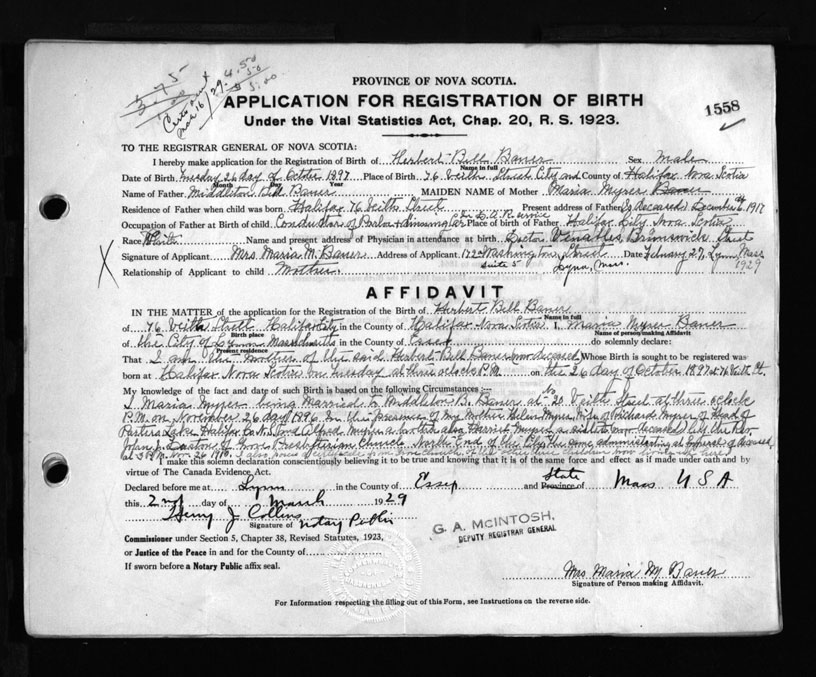 PROVINCE OF NOVA SCOTIA.
APPLICATION FOR REGISTRATION OF BIRTH
1558
Under the Vital Statistics Act, Chap. 20, R. S. 1923.
TO THE REGISTRAR GENERAL OF NOVA SCOTIA:
I hereby make application for the Registration of Birth of Herbert Bell Bauer Sex Male
Name in full
Date of Birth Tuesday 26 day of October 1897 Place of Birth 76 Veith Street City and County of Halifax Nova Scotia
Month Day Year
Name of Father Middleton Bell Bauer MAIDEN NAME of Mother Maria Myrer Bauer
Residence of Father when child was born Halifax 76 Veith Street Present Deceased December 6th 1917
Occupation of Father at Birth of Child Conductor of Parlor & Dining Car Place of Birth of Father Halifax City Nova Scotia
Race White Name and present address of Physician in attendance at birth Doctor Venables Brunswick Street
Signature of Applicant Mrs Maria M. Bauer Address of Applicant 172 Washington Street Date February 27 Lynn Mass
Relationship of Applicant to child Mother. Suite 5 Lynn, Mass. 1929
AFFIDAVIT
IN THE MATTER of the application for the Registration of the Birth of Herbert Bell Bauer
Name in full
of 76 Veith Street Halifax City in the County of Halifax Nova Scotia I, Maria Myrer Bauer
Place of birth Name of person making Affidavit
of the City of Lynn Massachusetts in the County of Essex do solemnly declare:
Present residence
That I am the mother of the said Herbert Bell Bauer now deceased Whose Birth is sought to be registered was
born at Halifax Nova Scotia on Tuesday at three oclock P.M. on the 26 day of October 1897 at 76 Veith St.
My knowledge of the fact and date of such Birth is based on the following Circumstances:
I Maria Myrer being Married to Middleton B. Bauer at Veith Street at three oclock
P.M. on November 26 day 1896 In the presence of My Mother Helen Myrer wife of Richard Myrer of Head of
Porters Lake Halifax Co. N.S. and Alfred Myrer a brother also Harriet Myrer a sister now deceased by the Rev
John Presbyterian Church North End of the City the same
at 3 P.M. Nov. 26
I make this solemn declaration conscientiously believing it to be true and knowing that it is of the same force and effect as if made under oath and by
virtue of The Canada Evidence Act.
Declared before me at Lynn in the County of Essex and Province of State Mass U S A
this 2nd day of March 1929
Henry J Collins
Signature of Notary Public
G. A. McINTOSH,
DEPUTY REGISTRAR GENERAL
Commissioner under Section 5, Chapter 38, Revised Statutes, 1923,
or Justice of the Peace in and for the County of
If sworn before a Notary Public affix seal.
Mrs Maria M Bauer
Signature of Person making Affidavit.
For Information respecting the filling out of this Form, see Instructions on the reverse side.